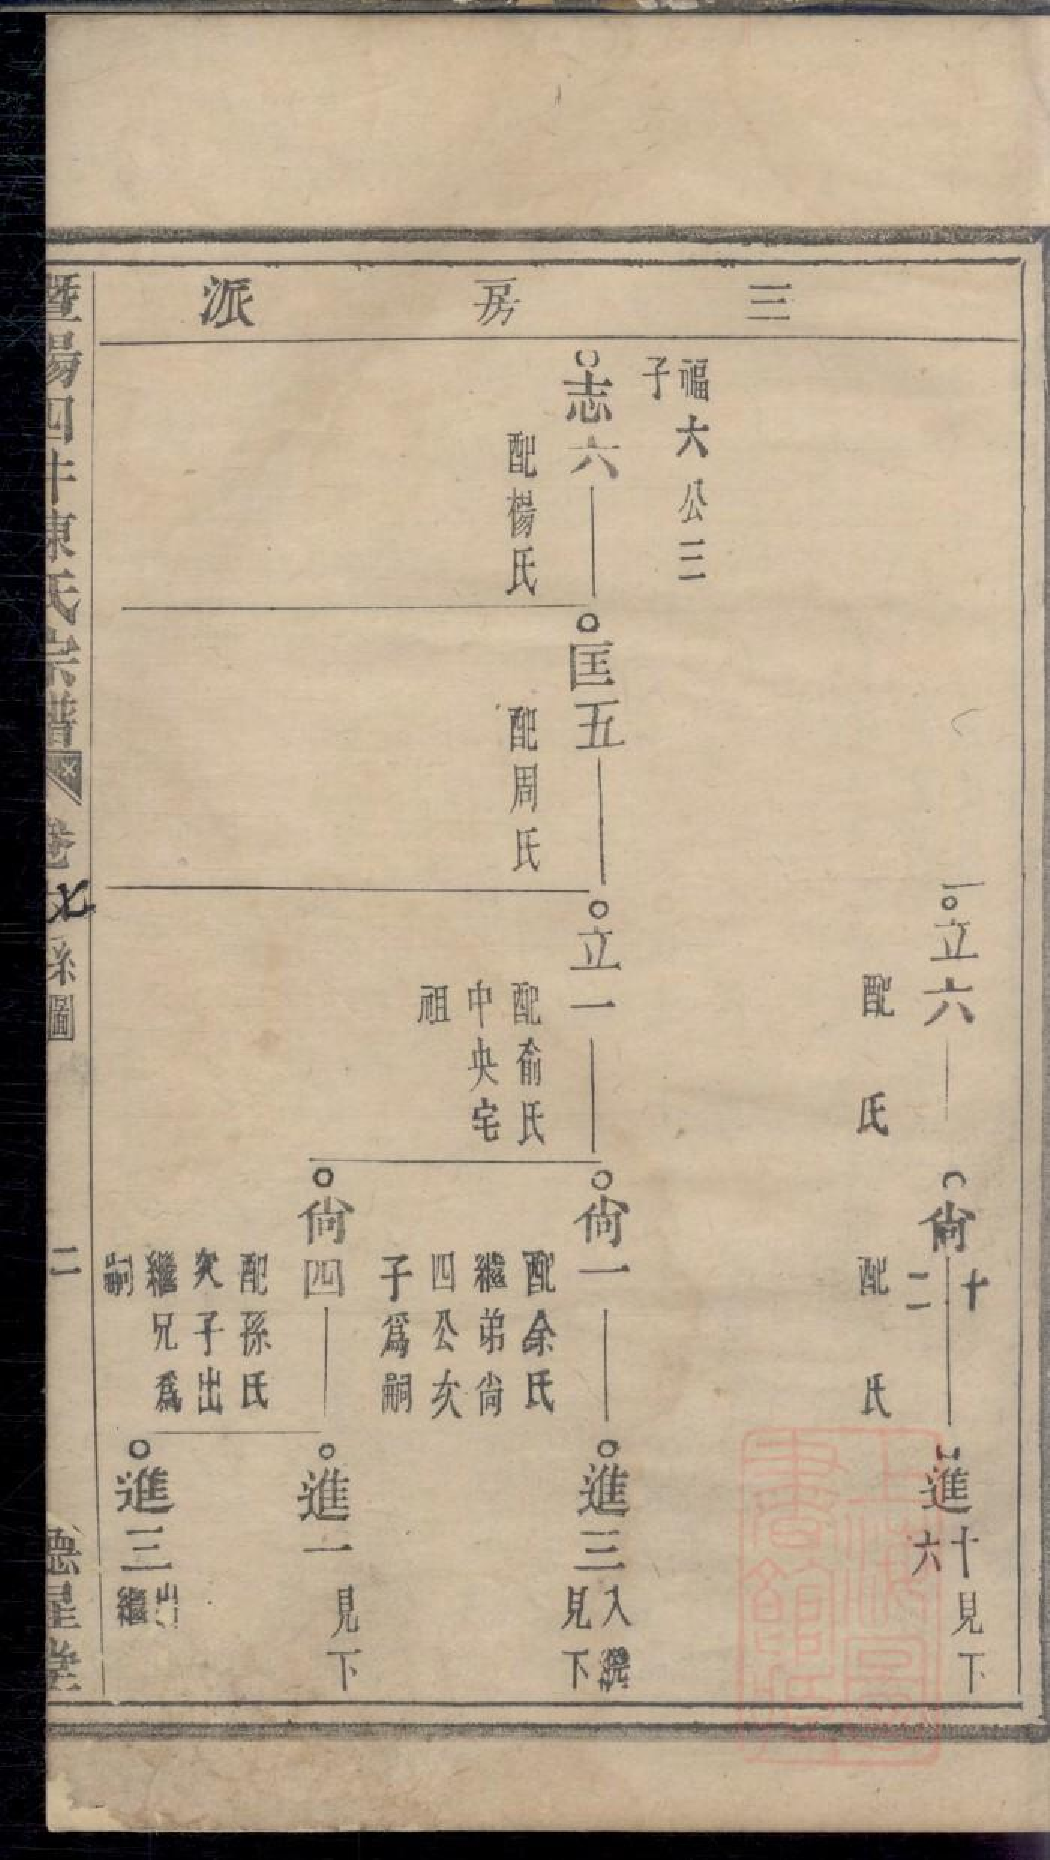 三房派
立六
配　氏
尙十二
配　氏
進十六
見下
福六公三
子
志六
配楊氏
匡五
配周氏
立一
配俞氏
中央宅
祖
尙一
配余氏
繼弟尙
四公次
子爲嗣
進三
入繼
見下
尙四
配孫氏
次子出
繼兄爲
嗣
進一
見下
進三
出繼
暨陽四牛東氏宗譜
卷七系圖
二
德星堂